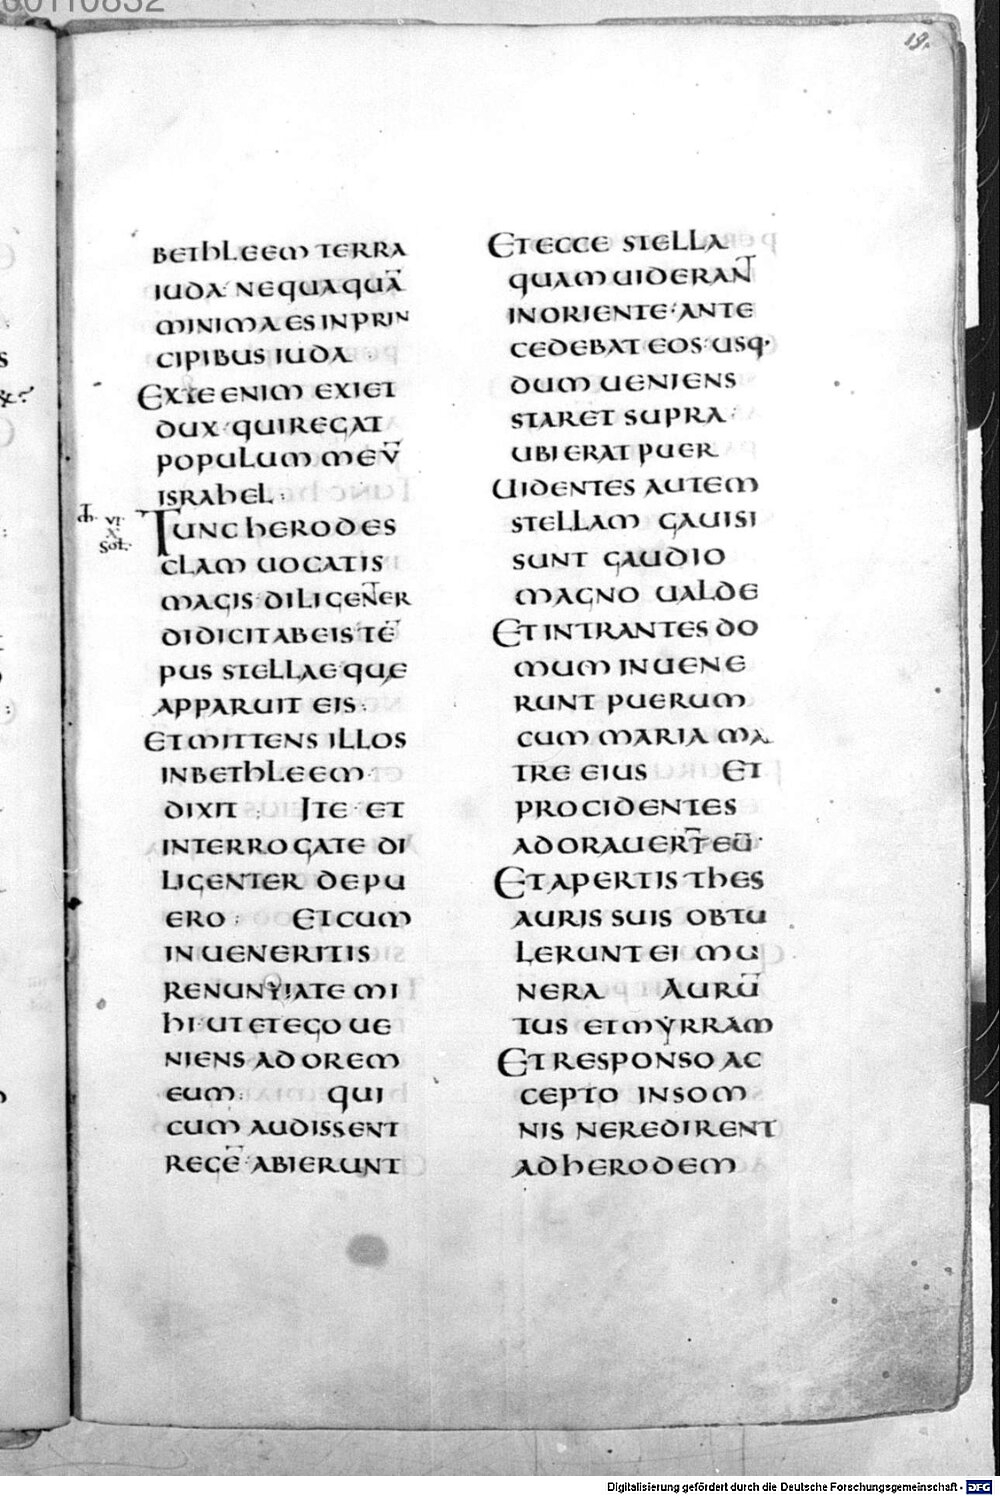 19.
BETHLEEM TERRA
IUDA· NEQUAQUĀ
MINIMA ES IN PRIN
CIPIBUS IUDA
EX TE ENIM EXIET
DUX· QUI REGAT
POPULUM MEŪ
ISRAHEL·
TUNC HERODES
CLAM UOCATIS
MAGIS· DILIGEN̄TER
DIDICIT AB EIS TĒ
PUS STELLAE QUE
APPARUIT EIS·
ET MITTENS ILLOS
IN BETHLEEM·
DIXIT: ITE· ET
INTERROGATE DI
LIGENTER DE PU
ERO: ET CUM
INUENERITIS
RENUNTIATE MI
HI· UT ET EGO UE
NIENS ADOREM
EUM: QUI
CUM AUDISSENT
REGĒ· ABIERUNT
ET ECCE STELLA
QUAM UIDERAN̄T
IN ORIENTE· ANTE
CEDEBAT EOS· USQ·
DUM UENIENS
STARET SUPRA·
UBI ERAT PUER
UIDENTES AUTEM
STELLAM GAUISI
SUNT GAUDIO
MAGNO UALDE
ET INTRANTES DO
MUM INUENE
RUNT PUERUM
CUM MARIA MA
TRE EIUS ET
PROCIDENTES
ADORAUER̄T EŪ·
ET APERTIS THES
AURIS SUIS OBTU
LERUNT EI MU
NERA AURŪ
TUS ET MẎRRAM
ET RESPONSO AC
CEPTO IN SOM
NIS NE REDIRENT
AD HERODEM
Digitalisierung gefördert durch die Deutsche Forschungsgemeinschaft - DFG